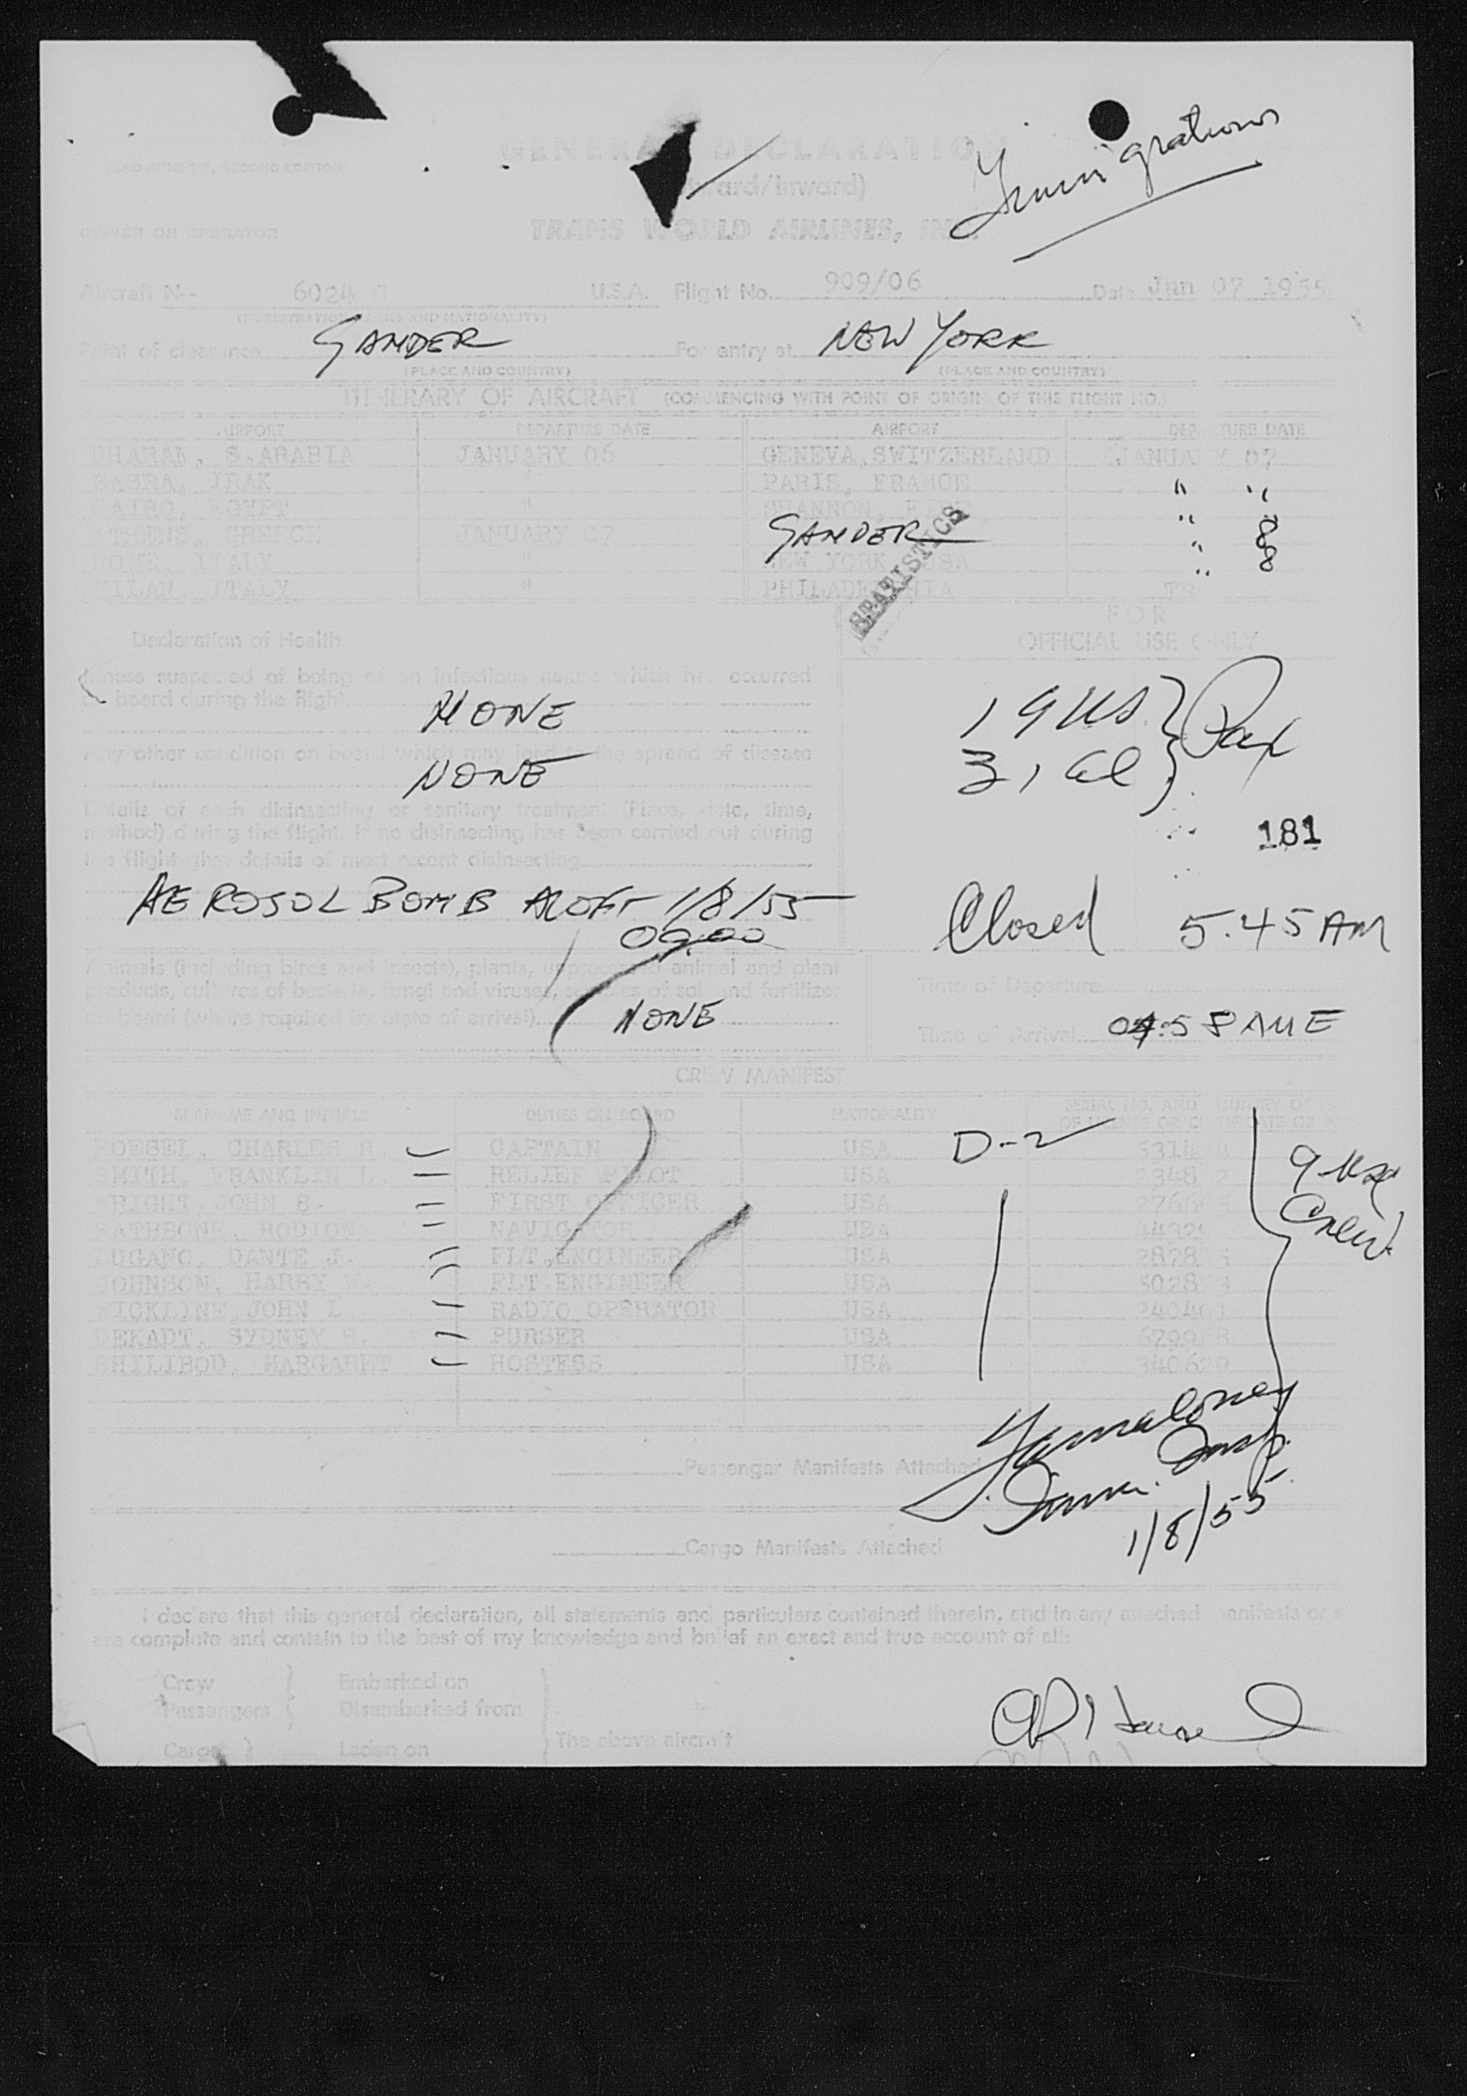 Immigrations
GENERAL DECLARATION
(Outward/Inward)
OWNER OR OPERATOR
TRANS WORLD AIRLINES, INC.
Aircraft N-- 6024 C U.S.A. Flight No. 909/06 Date Jan 07 1955
(REGISTRATION MARKS AND NATIONALITY)
Point of clearance GANDER For entry at NEW YORK
(PLACE AND COUNTRY) (PLACE AND COUNTRY)
ITINERARY OF AIRCRAFT (COMMENCING WITH POINT OF ORIGIN OF THIS FLIGHT NO.)
AIRPORT DEPARTURE DATE AIRPORT DEPARTURE DATE
DHARAN, S.ARABIA JANUARY 06 GENEVA,SWITZERLAND JANUARY 07
BASRA, IRAK " PARIS, FRANCE " "
CAIRO, EGYPT " SHANNON, " "
ATHENS, GREECE JANUARY 07 GANDER " 8
ROME, ITALY " NEW YORK, USA " 8
MILAN, ITALY " PHILADELPHIA
STATISTICS
Declaration of Health
FOR
OFFICIAL USE ONLY
Illness suspected of being of an infectious nature which has occurred
on board during the flight
NONE
19 US } Pax
Any other condition on board which may lead to the spread of disease
NONE
3, al
Details of each disinsecting or sanitary treatment (Place, date, time,
method) during the flight. If no disinsecting has been carried out during
the flight give details of most recent disinsecting
181
AEROSOL BOMB ALOFT 1/8/55
09:00
Closed 5.45 AM
Animals (including birds and insects), plants, unprocessed animal and plant
products, cultures of bacteria, fungi and viruses, samples of soil and fertilizer
on board (where required by state of arrival) NONE
Time of Departure
Time of Arrival
CREW MANIFEST
SURNAME AND INITIALS DUTIES ON BOARD NATIONALITY
KOEGEL, CHARLES H. CAPTAIN USA D-2
SMITH, FRANKLIN L. RELIEF PILOT USA
WRIGHT, JOHN S. FIRST OFFICER USA
RATHBONE, NAVIGATOR USA
LUGANO, DANTE J. FLT.ENGINEER USA
JOHNSON, HARRY W. FLT.ENGINEER USA
WICKLINE, JOHN L RADIO OPERATOR USA
DEKADT, SYDNEY PURSER USA
SHILIBOD, MARGARET HOSTESS USA
9 USA
Crew
Passenger Manifests Attached
1/8/55
Cargo Manifests Attached
I declare that this general declaration, all statements and particulars contained therein, and in any attached manifests
are complete and contain to the best of my knowledge and belief an exact and true account of all:
Crew } Embarked on
Passengers Disembarked from
Cargo } Laden on } The above aircraft